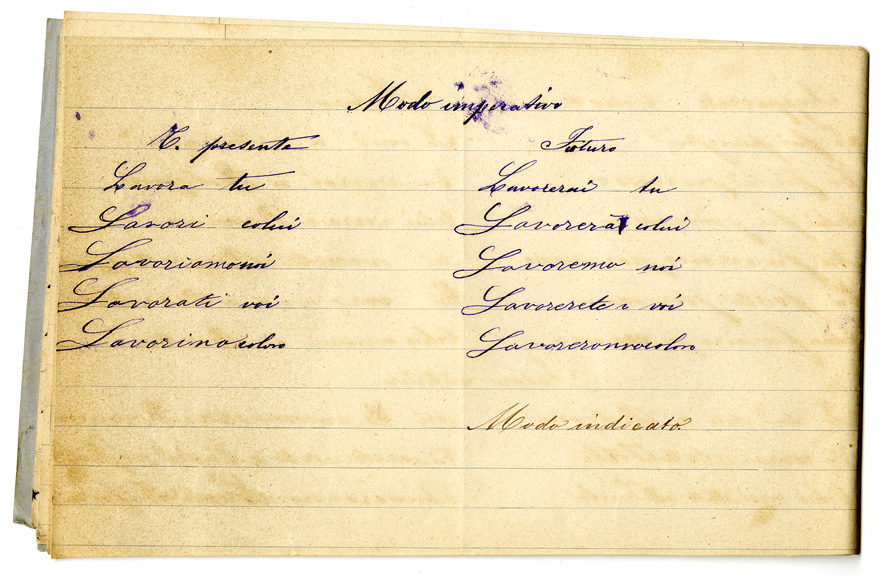 Modo imperativo
T. presente
Lavora tu
Lavori colui
Lavoriamo noi
Lavorati voi
Lavorino coloro
Futuro
Lavorerai tu
Lavorerà colui
Lavoremo noi
Lavorerete voi
Lavoreronno coloro
Modo indicato.